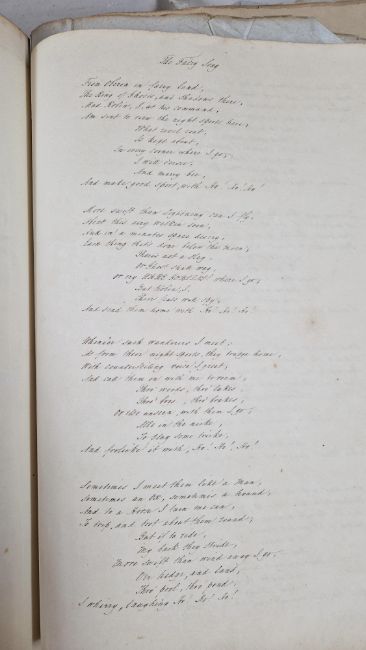 The Fairy Song
From Oberon in fairy land,
The King of Ghosts, and Shadows there,
Mad Robin, I, at his command,
Am sent to view the night sports here,
What revel rout,
Is kept about,
In every corner where I go,
I will o'ersee,
And merry bee,
And make good sport, with Ho! Ho! Ho!
More swift than lightening can I fly,
About this airy welkin soon,
And in a minutes space descry,
Each thing that's done below the moon,
There's not a Hag,
Or Ghost shall wag,
or cry where I go,
But Robin, I,
Their feats will spy,
And send them home with Ho! Ho! Ho!
Whene'er such wanderers I meet,
As from their night sports, they trudge home,
With counterfeiting voice I greet,
And call them on with me to roam,
Thro' woods, thro' lakes,
Thro' bogs, thro' brakes,
Or else unseen, with them I go,
All in the nick,
To play some tricke,
And frolicke it with, Ho! Ho! Ho!
Sometimes I meet them like a Man,
Sometimes an Ox, sometimes a hound,
And to a Horse I turn me can,
To trip, and trot about them round,
But if to ride,
My back they stride,
More swift than wind away I go,
O'er hedge, and land,
Thro' pool, thro' pond,
I whirry, laughing Ho! Ho! Ho!